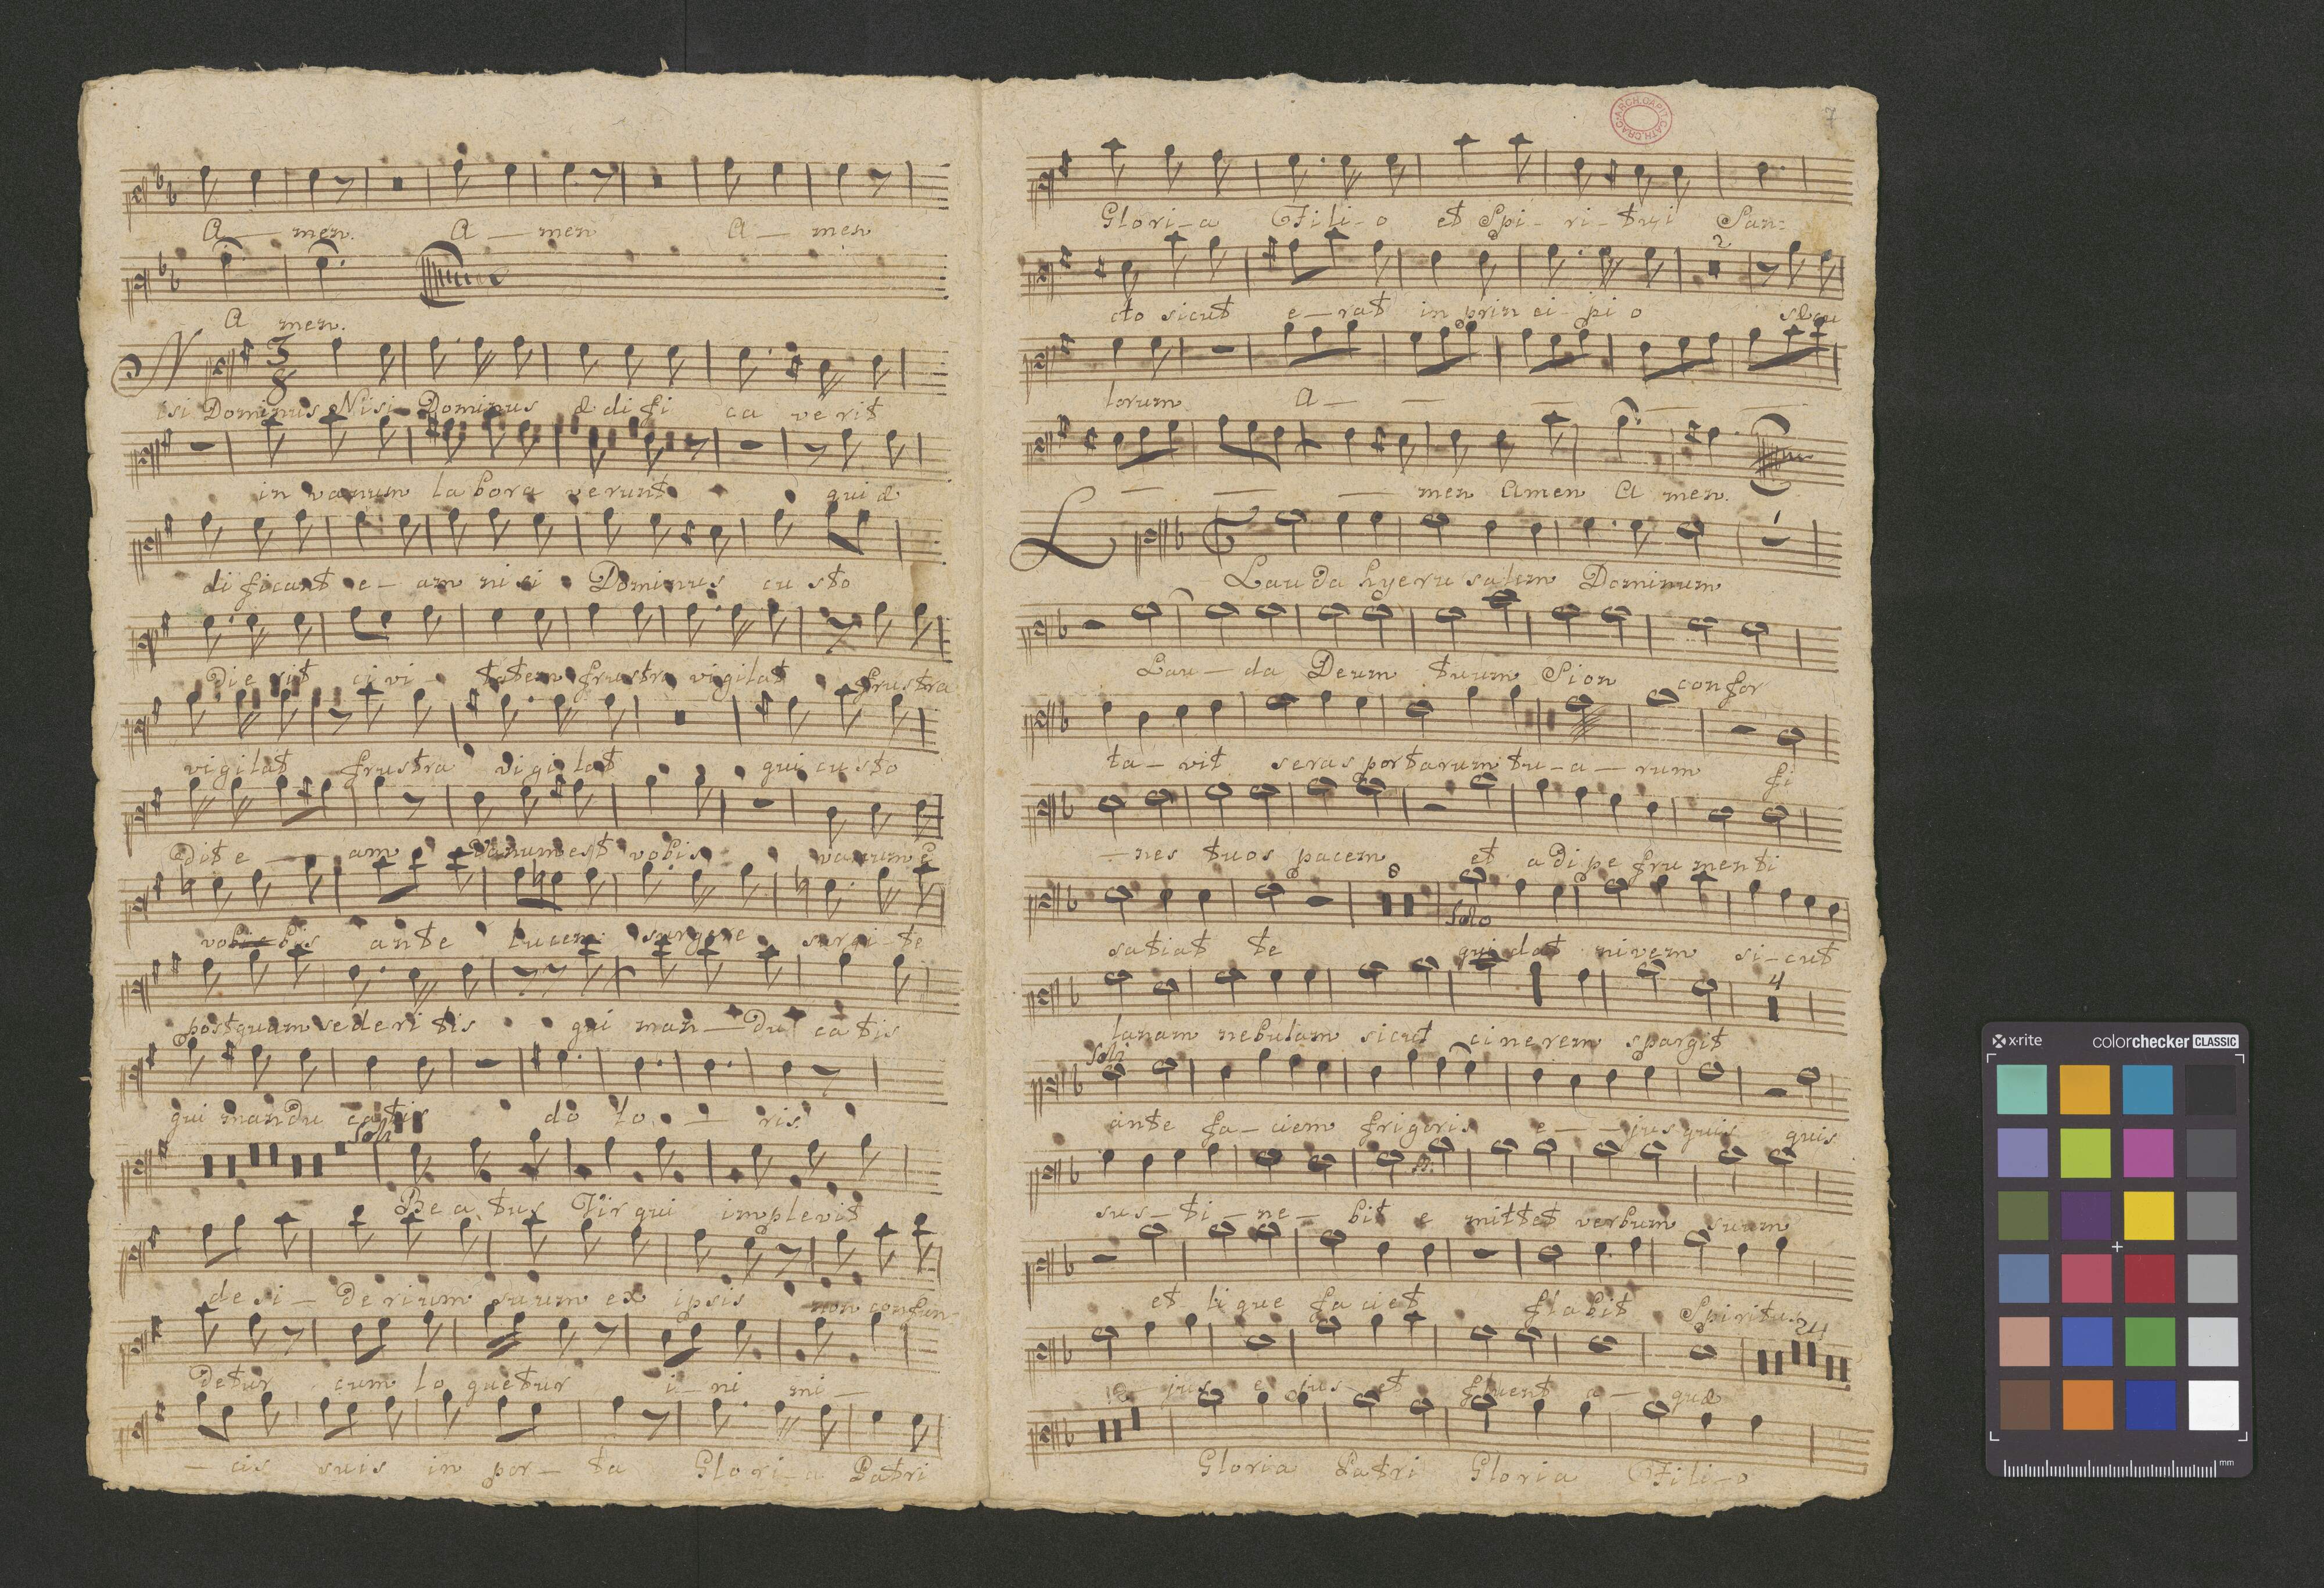 A — men. A — men A — men
A men.
3
8
N
isi Dominus Nisi Dominus ædifi ca verit
in vanum labora verunt qui æ
dificant e – am nisi Dominus cu sto
Die rit ci vi – tatem frustra vigilat frustra
vigilat frustra vigi lat qui cu sto
Dit e – am vanum est vobis vanum e
bis ante lucem surgere surgi – te
postquam sede ri tis qui man – Du catis
qui mandu catis do lo – ris.
Soli
Be a tus Vir qui implevit
de si – de rium suum ex ipsis non confun-
Detur cum lo quetur i – ni mi –
– cis suis in por – ta Glori – a Patri
ARCH.CAPIT.CATH.CRAC
7
Glori – a Fili – o et Spi – ri – tui San:
2
cto sicut e – rat in prin ci – pi o sæcu
lorum A –
men Amen A men.
L
Lauda hyeru salem Dominum
Lau – da Deum tuum Sion confor
ta – vit seras portarum tu – a – rum fi
– nes tuos pacem et adipe fru menti
8
Solo
satiat te qui dat nivem si – cut
4
lanam nebulam sicut cinerem spargit
Soli
ante fa – ciem frigoris e – – jus quis quis
sus – ti – ne – bit e mittet verbum suum
et lique faciet flabit Spiritus
24
jus e jus et fluent a – quæ
Gloria Patri Gloria Fili – o
x·rite colorchecker CLASSIC
mm